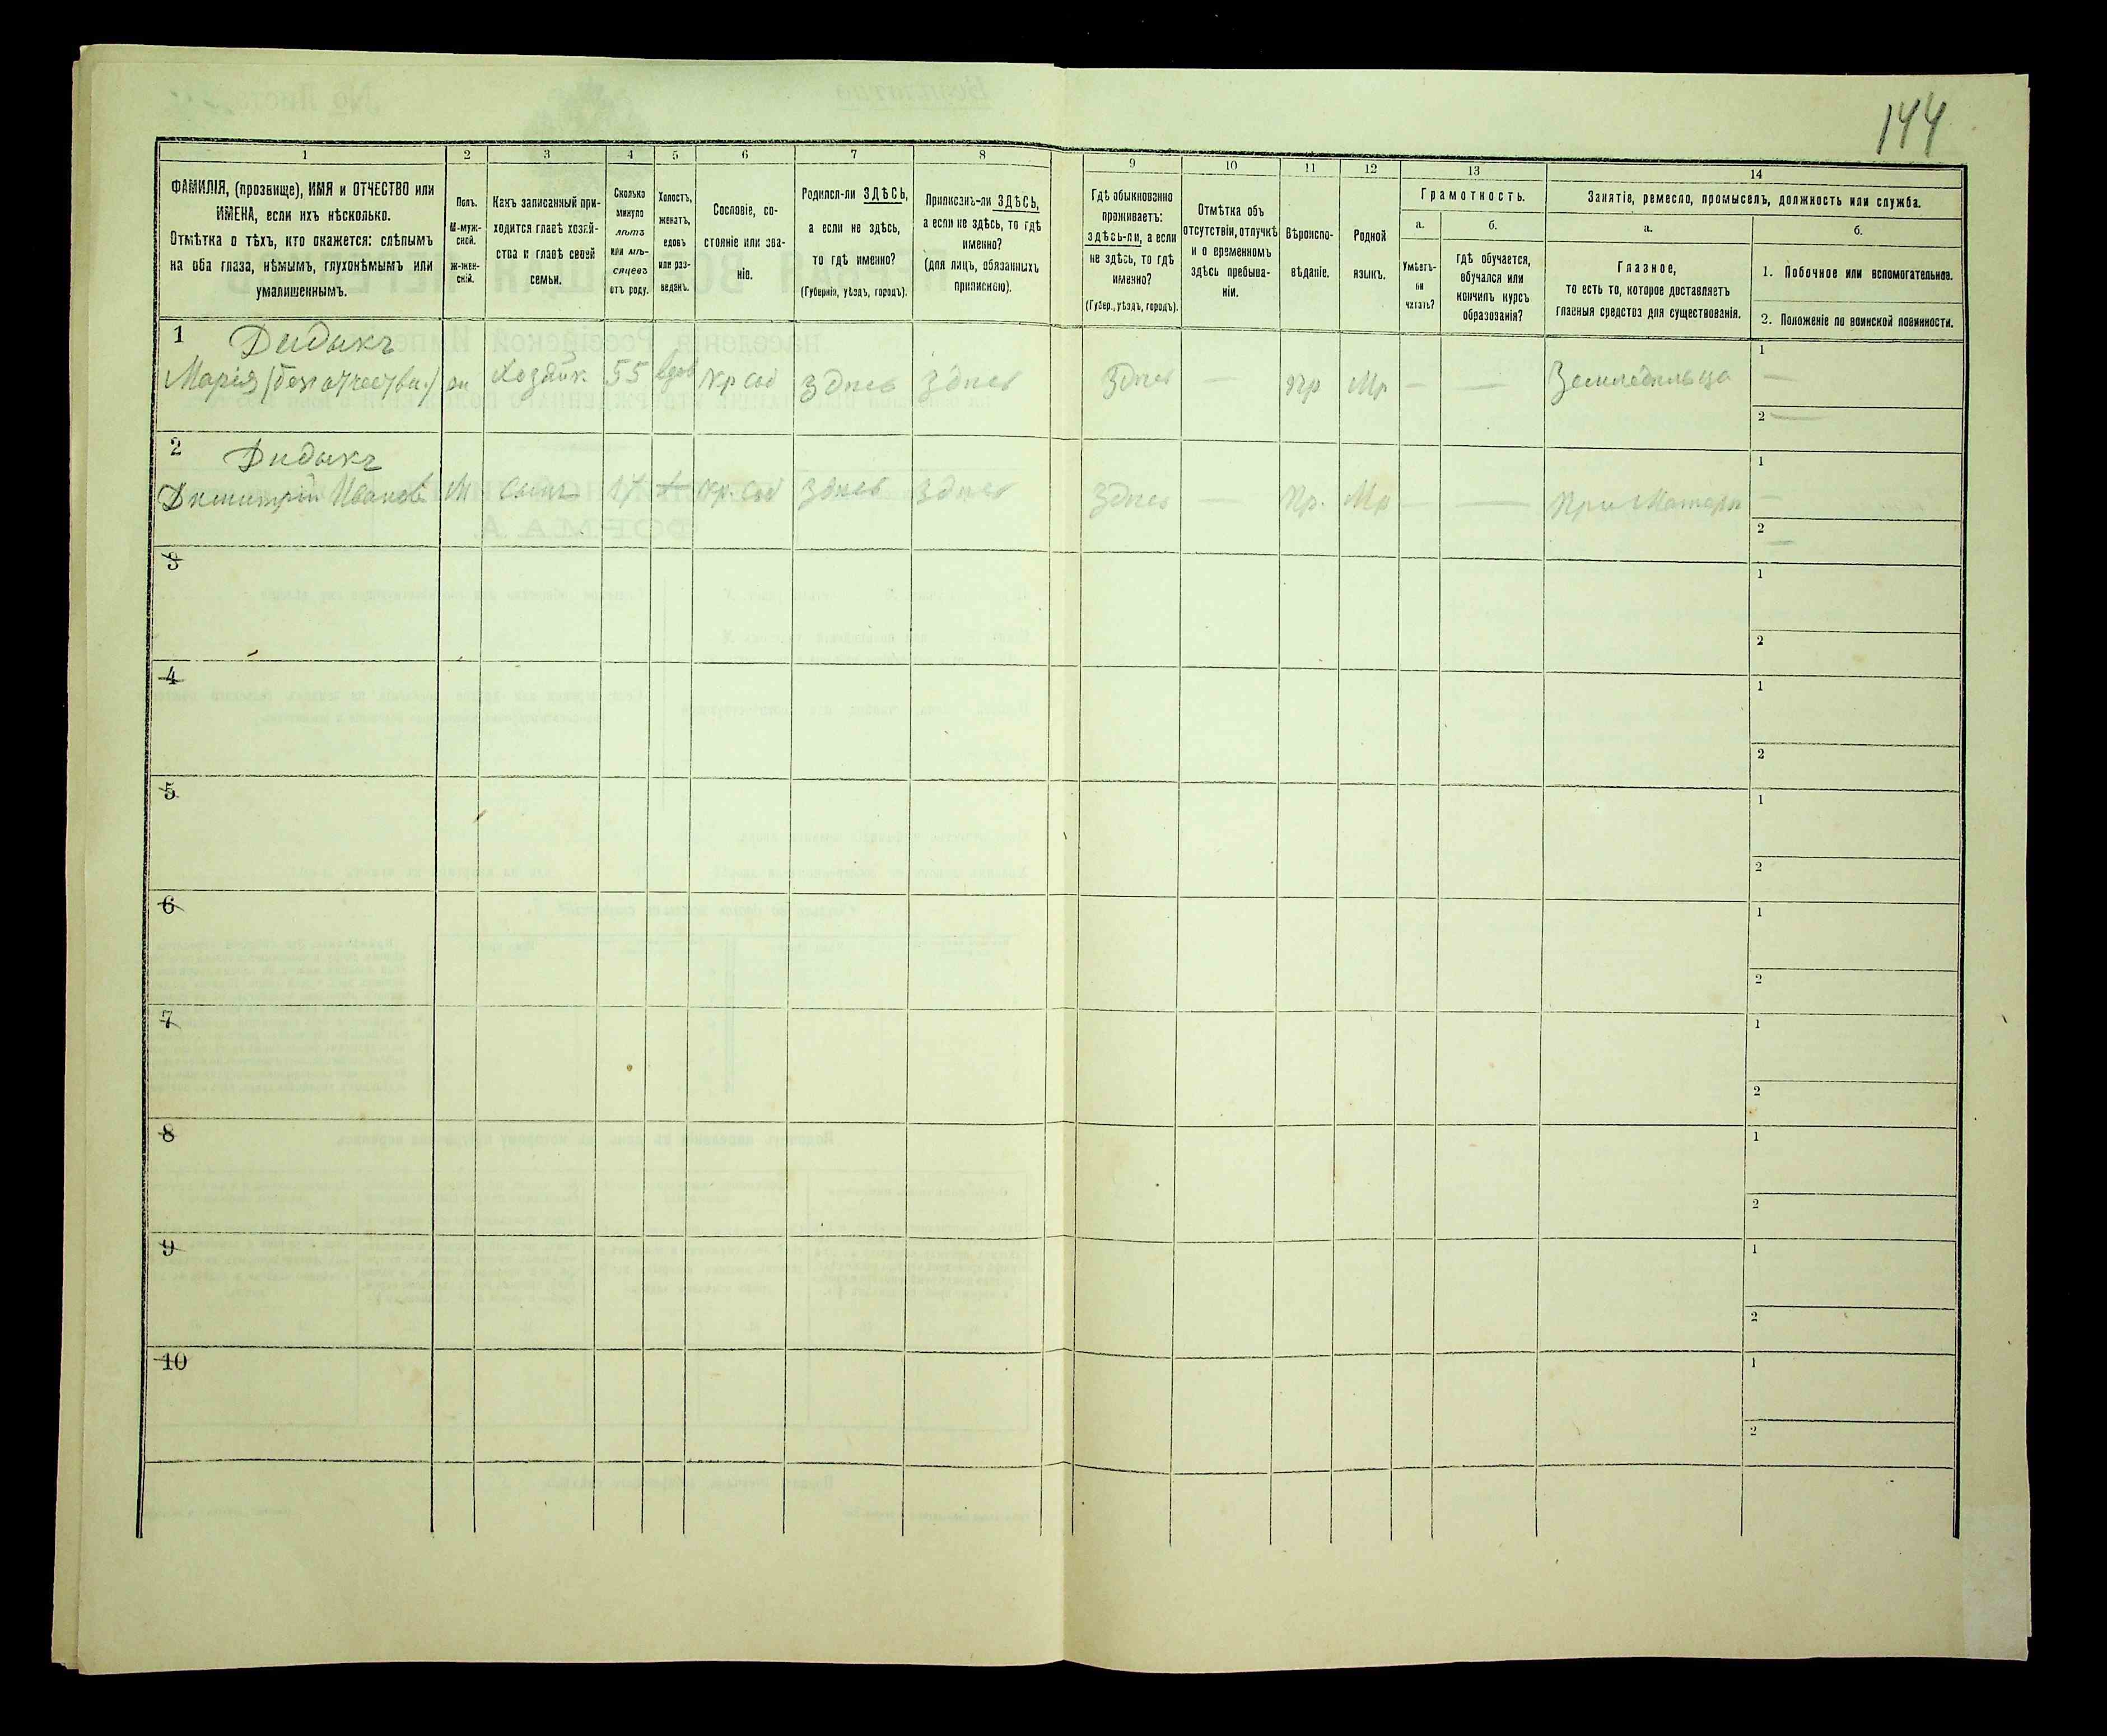 144
1 2 3 4 5 6 7 8 9 10 11 12 13 14
ФАМИЛІЯ, (прозвище), ИМЯ и ОТЧЕСТВО или
ИМЕНА, если ихъ нѣсколько.
Отмѣтка о тѣхъ, кто окажется: слѣпымъ
на оба глаза, нѣмымъ, глухонѣмымъ или
умалишеннымъ.
Полъ.
М-муж-
ской.
Ж-жен-
скій.
Какъ записанный при-
ходится главѣ хозяй-
ства и главѣ своей
семьи.
Сколько
минуло
лѣтъ
или мѣ-
сяцевъ
отъ роду.
Холостъ,
женатъ,
вдовъ
или раз-
веденъ.
Сословіе, со-
стояніе или зва-
ніе.
Родился-ли ЗДѢСЬ,
а если не здѣсь,
то гдѣ именно?
(Губернія, уѣздъ, городъ).
Приписанъ-ли ЗДѢСЬ,
а если не здѣсь, то гдѣ
именно?
(для лицъ, обязанныхъ
припискою).
Гдѣ обыкновенно
проживаетъ:
здѣсь-ли, а если
не здѣсь, то гдѣ
именно?
(Губер., уѣздъ, городъ).
Отмѣтка объ
отсутствіи, отлучкѣ
и о временномъ
здѣсь пребыва-
ніи.
Вѣроиспо-
вѣданіе.
Родной
языкъ.
Грамотность.
а.
Умѣетъ-
ли
читать?
б.
гдѣ обучается,
обучался или
кончилъ курсъ
образованія?
Занятіе, ремесло, промыселъ, должность или служба.
а.
Главное,
то есть то, которое доставляетъ
главныя средства для существованія.
б.
1. Побочное или вспомогательное.
2. Положеніе по воинской повинности.
1 Дидыкъ
Марія (без отчеств.) ж Хозяйк. 55 вдов кр соб Здесь Здесь Здесь — пр Мр — — Земледельца 1 —
2 —
2 Дидыкъ
Димитрій Иванов М сынъ 17 х кр. соб Здесь Здесь Здесь — Пр. Мр — — При Матери 1 —
2 —
3 1
2
4 1
2
5 1
2
6 1
2
7 1
2
8 1
2
9 1
2
10 1
2